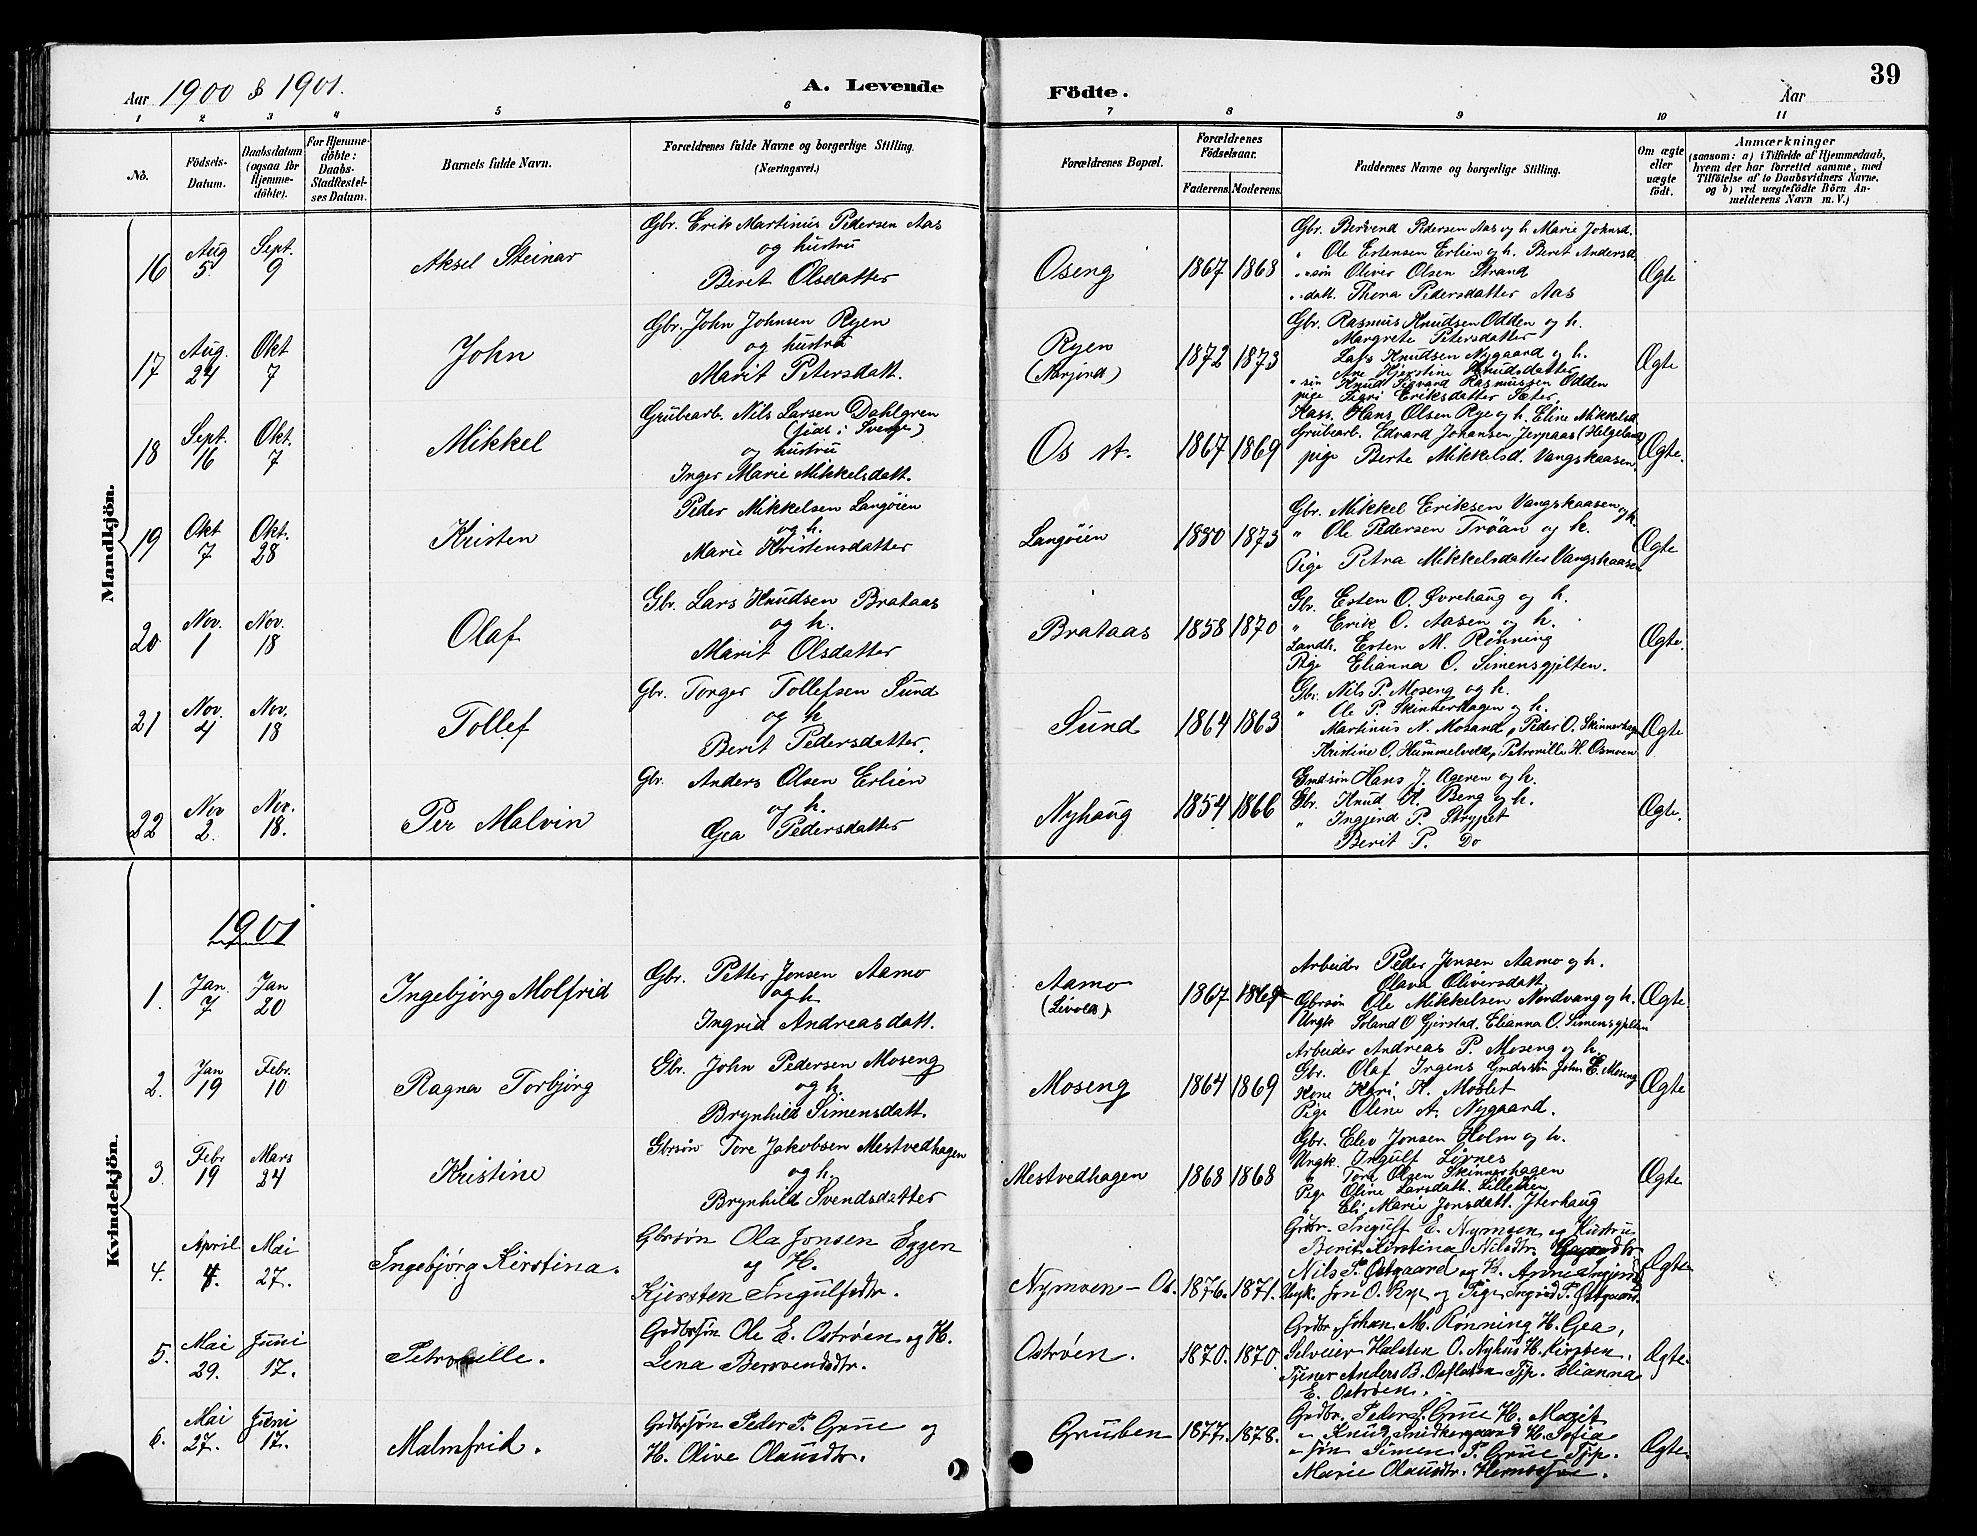 Aar 1900 & 1901.
A. Levende Födte.
Aar
39
1 2 3 4 5 6 7 8 9 10 11
No.
Födsels-Datum.
Daabsdatum (ogsaa för Hjemme-döbte).
For Hjemme-döbte: Daabs-Stadfæstel-ses Datum.
Barnets fulde Navn.
Forældrenes fulde Navne og borgerlige Stilling. (Næringsvei.)
Forældrenes Bopæl.
Forældrenes Födselsaar.
Faderens. Moderens.
Faddernes Navne og borgerlige Stilling.
Om ægte eller uægte født.
Anmærkninger
(saasom: a) i Tilfælde af Hjemmedaab, hvem der har forrettet samme, med Tilföielse af to Daabsvidners Navne, og b) ved uægtefödte Börn An-melderens Navn m. V.)
Mandkjön.
16 Aug 5 Sept. 9 Aksel Steinar
Gbr. Erik Martinus Pedersen Aas
og hustru
Berit Olsdatter
Oseng 1867 1868
Gbr. Bersvend Pedersen Aas og h. Marie Johnsd.
" Ole Estensen Erlien og h. Berit Andersd
" søn Oliver Olsen Strand
" datt. Thora Pedersdatter Aas
Ægte
17 Aug. 24 Okt 7 John
Gbr. John Johnsen Ryen
og hustru
Marit Petersdatt.
Ryen
(Narjord) 1872 1873
Gbr. Rasmus Knudsen Odden og h.
Margrete Petersdatter
Lars Knudsen Nygaard og h.
Ane Kjerstine Knudsdatter
" søn Knud Sigvard Rasmussen Odden
pige Sigri Eriksdatter Sæter
Ægte
18 Sept. 16 Okt. 7 Mikkel
Grubearb. Nils Larsen Dahlgren
(födt i Sverige)
og hustru
Inger Marie Mikkelsdatt.
Os st. 1867 1869
Huss. Hans Olsen Rye og h. Eline Mikkelsd
Grubearb. Edvard Johansen Jerpaas (Helgeland)
pige Berte Mikkelsd. Vangskaasen
Ægte.
19 Okt 7 Okt. 28 Kristen
Peder Mikkelsen Langøien
og h.
Marie Kristensdatter
Langøien 1880 1873
Gbr. Mikkel Eriksen Vangskaasen og h.
" Ole Pedersen Trøan og h.
Pige Petra Mikkelsdatter Vangskaasen
Ægte
20 Nov. 1 Nov. 18 Olaf
Gbr. Lars Knudsen Brataas
og h.
Marit Olsdatter
Brataas 1858 1870
Gbr. Esten O. Øvrehaug og h.
" Erik O. Aasen og h.
Landh. Esten M. Rønning
Pige Elianna O. Simensgjelten.
Ægte.
21 Nov. 4 Nov. 18 Tollef
Gbr. Torger Tollefsen Sund
og h
Berit Pedersdatter.
Sund 1864 1863
Gbr. Nils P. Moseng og h.
" Ole P. Skinnerhagen og h.
Martinus N. Mosand, Peder O. Skinnerhagen
Kristine O. Hummelvold, Petroville H. Osmoen
Ægte
22 Nov 2. Nov. 18. Per Malvin
Gbr. Anders Olsen Erlien
og h.
Gea Pedersdatter
Nyhaug 1854 1866
Gmdsøn Hans J. Ageren og h.
Gbr. Knud H. Berg og h.
" Ingjerd P. Strypet
Berit P. Do
Ægte.
Kvindekjön.
1901
1. Jan. 7 Jan 20 Ingebjørg Molfrid
Gbr. Petter Jonsen Aamo
og h
Ingrid Andreasdatt.
Aamo
(Livold) 1867 1869
Arbeider Peder Jonsen Aamo og h.
Olava Oliversdatt.
Gbrsøn Ole Mikkelsen Nordvang og h.
Ungk. Soland O Gjerstad. Elianna O. Simensgjelten
Ægte
2. Jan 19 Febr. 10 Ragna Torbjørg
Gbr. John Pedersen Moseng
og h
Brynhild Simensdatt.
Moseng 1864 1869
Arbeider Andreas P. Moseng og h.
Gbr. Olaf Irgens Gmdssøn John E. Moseng
Kone Kari H. Moslet
Pige Oline A. Nygaard.
Ægte
3. Febr 19 Mars 24 Kristine
Gbrsøn Tore Jakobsen Mestvedhagen
og h.
Brynhild Svendsdatter
Mestvedhagen 1868 1868
Gbr. Elev Jonsen Holm og h.
Ungk. Ingulf Livnes
" Tore Olsen Skinnerhagen
Pige Oline Larsdatt. Lilleeien
" Eli Marie Jonsdatt. Ytterhaug
Ægte
4. April 4. Mai 27. Ingebjørg Kirstina.
Gbrsøn Ola Jonsen Eggen
og H.
Kjersten Ingulfsdtr.
Nymoen – Os. 1876. 1871.
Grdbr. Ingulf E. Nymoen og Hustru
Berit Kirstina Nilsdtr.
Nils P. Østgaard og H. Anne Ingjerd
Ungk. Jon O. Rye og Pige Ingrid P. Østgaard.
Ægte
5. Mai 29. Juni 17. Petroville.
Grdbrsøn Ole E. Ostrøen og H.
Lena Bersvendsdtr.
Ostrøen. 1870. 1870.
Grdbr. Johan M. Rønning H. Gea,
Selveier Halsten O. Nyhus H. Kirsten.
Tjener Anders B. Osfloten Tjp. Elianna
E. Ostrøen.
Ægte.
6. Mai 27. Juni 17. Malmfrid.
Grdbrsøn Peder P. Grue og
H. Olive Olausdtr.
Gruben 1877. 1878.
Grdbr. Peder S. Grue H. Marit
" Knud Snidkergaard H. Sofie
" søn Simen P. Grue Tjp.
Marie Olausdtr.
Ægte.